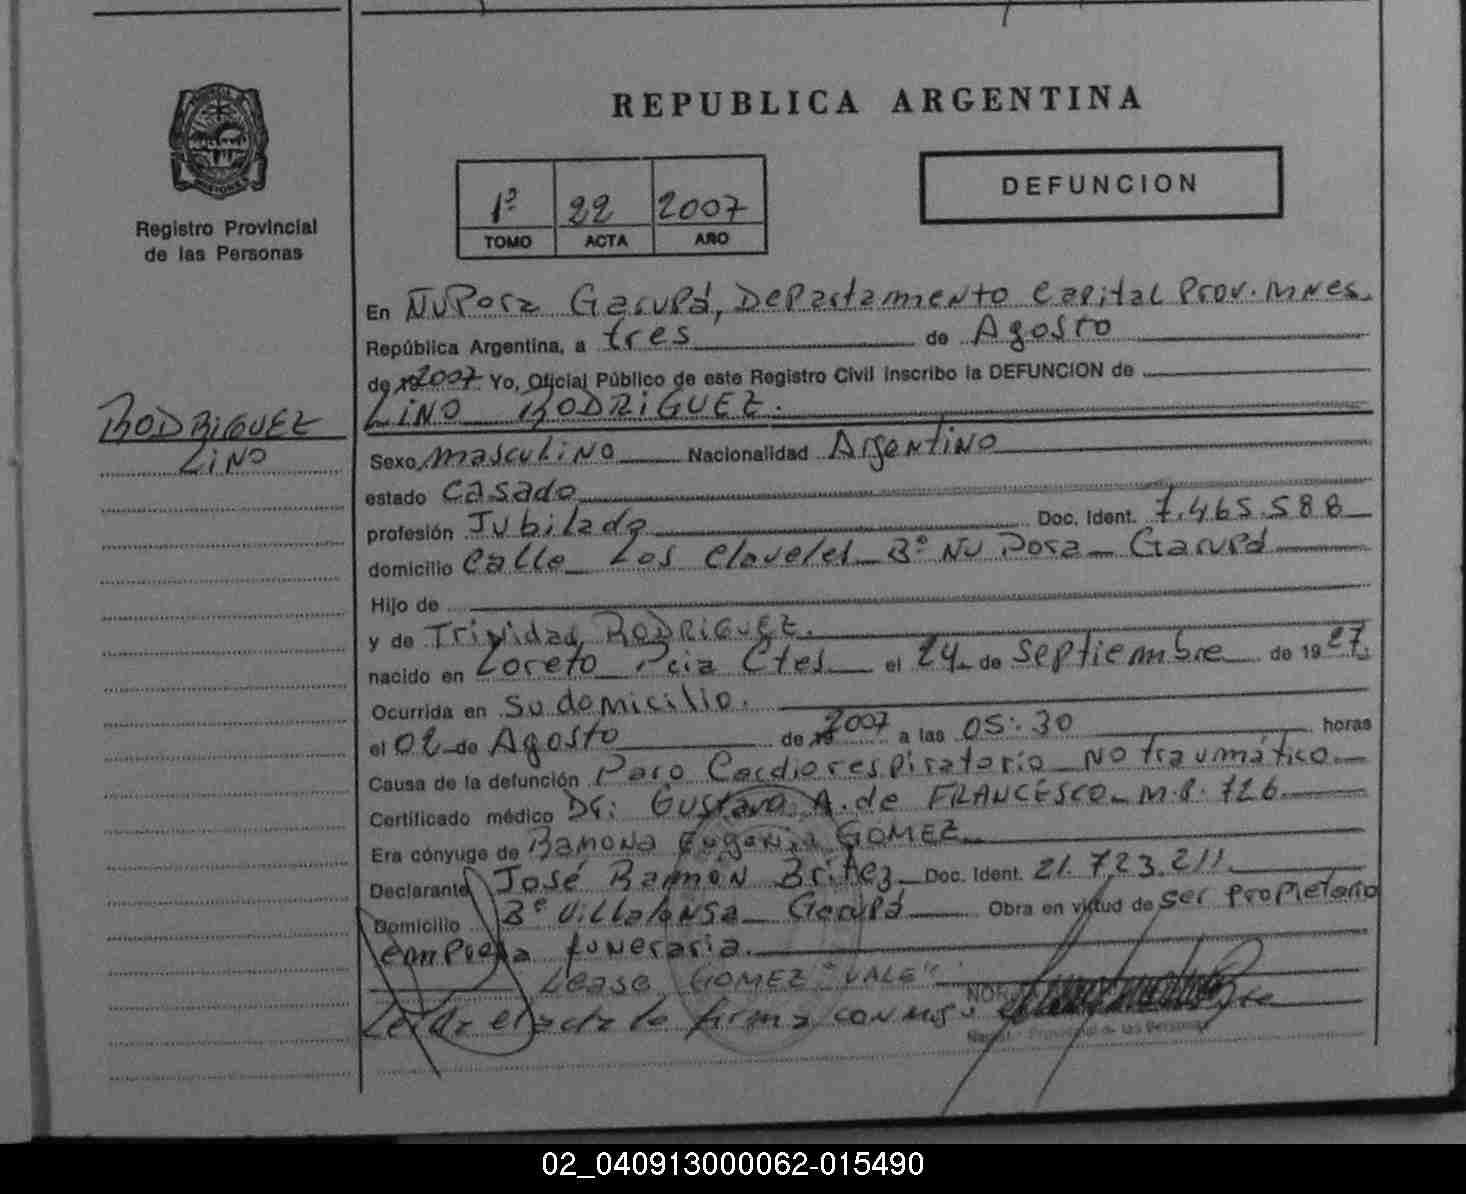 REPUBLICA ARGENTINA
DEFUNCION
1º 22 2007
TOMO ACTA AÑO
Registro Provincial
de las Personas
MISIONES
En ÑuPora Garupá, Departamento Capital Prov. Mnes.
República Argentina, a tres de Agosto
de 2007 Yo, Oficial Público de este Registro Civil inscribo la DEFUNCION de
LINO RODRIGUEZ.
RODRIGUEZ
LINO
Sexo masculino Nacionalidad Argentino
estado Casado
profesión Jubilado Doc. Ident. 7.465.588
domicilio Calle Los Claveles Bº Ñu Pora Garupá
Hijo de
y de Trinidad RODRIGUEZ.
nacido en Loreto Pcia Ctes el 24 de Septiembre de 1927.
Ocurrida en Su domicilio.
el 02 de Agosto de 2007 a las 05:30 horas
Causa de la defunción Paro Cardiorespiratorio No traumático
Certificado médico Dr: Gustavo A. de FRANCESCO M.P. 726
Era cónyuge de Ramona Eugenia GOMEZ
Declarante José Ramón Britez Doc. Ident. 21.723.211
Domicilio Bº Villalonsa Garupá Obra en virtud de ser propietario
empresa funeraria.
Lease GOMEZ "VALE"
Leída el acta la firma conmigo
02_040913000062-015490